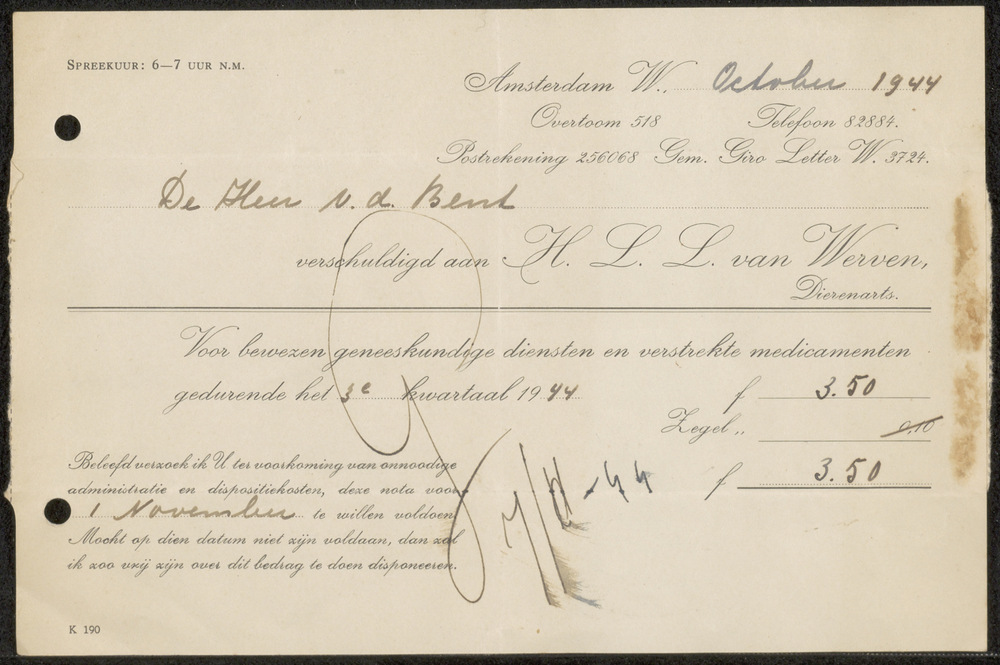 SPREEKUUR: 6—7 UUR N.M.
Amsterdam W., October 1944
Overtoom 518 Telefoon 82884.
Postrekening 256068 Gem. Giro Letter W. 3724.
De Heer v. d. Bent
verschuldigd aan H. L. L. van Werven,
Dierenarts.
Voor bewezen geneeskundige diensten en verstrekte medicamenten
gedurende het 3e kwartaal 1944 f 3.50
Zegel „ 0,10
f 3.50
Beleefd verzoek ik U ter voorkoming van onnoodige
administratie en dispositiekosten, deze nota voor
1 November te willen voldoen
Mocht op dien datum niet zijn voldaan, dan zal
ik zoo vrij zijn over dit bedrag te doen disponeeren.
K 190